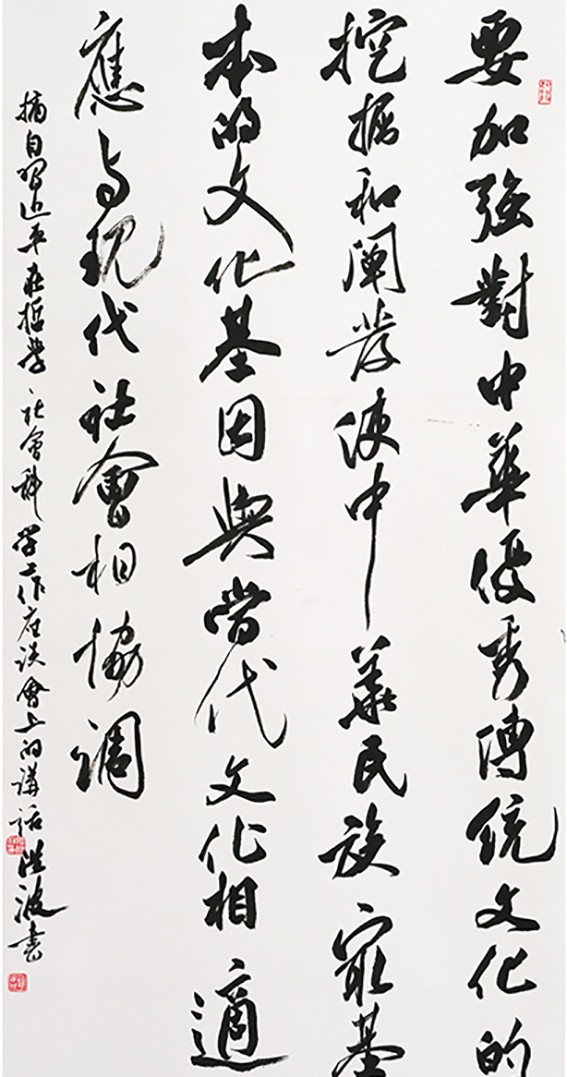 要加強對中華優秀傳統文化的
挖掘和闡發使中華民族最基
本的文化基因與當代文化相適
應与現代社會相協調
摘自習近平在哲學社會科學工作座談會上的講話洪波書